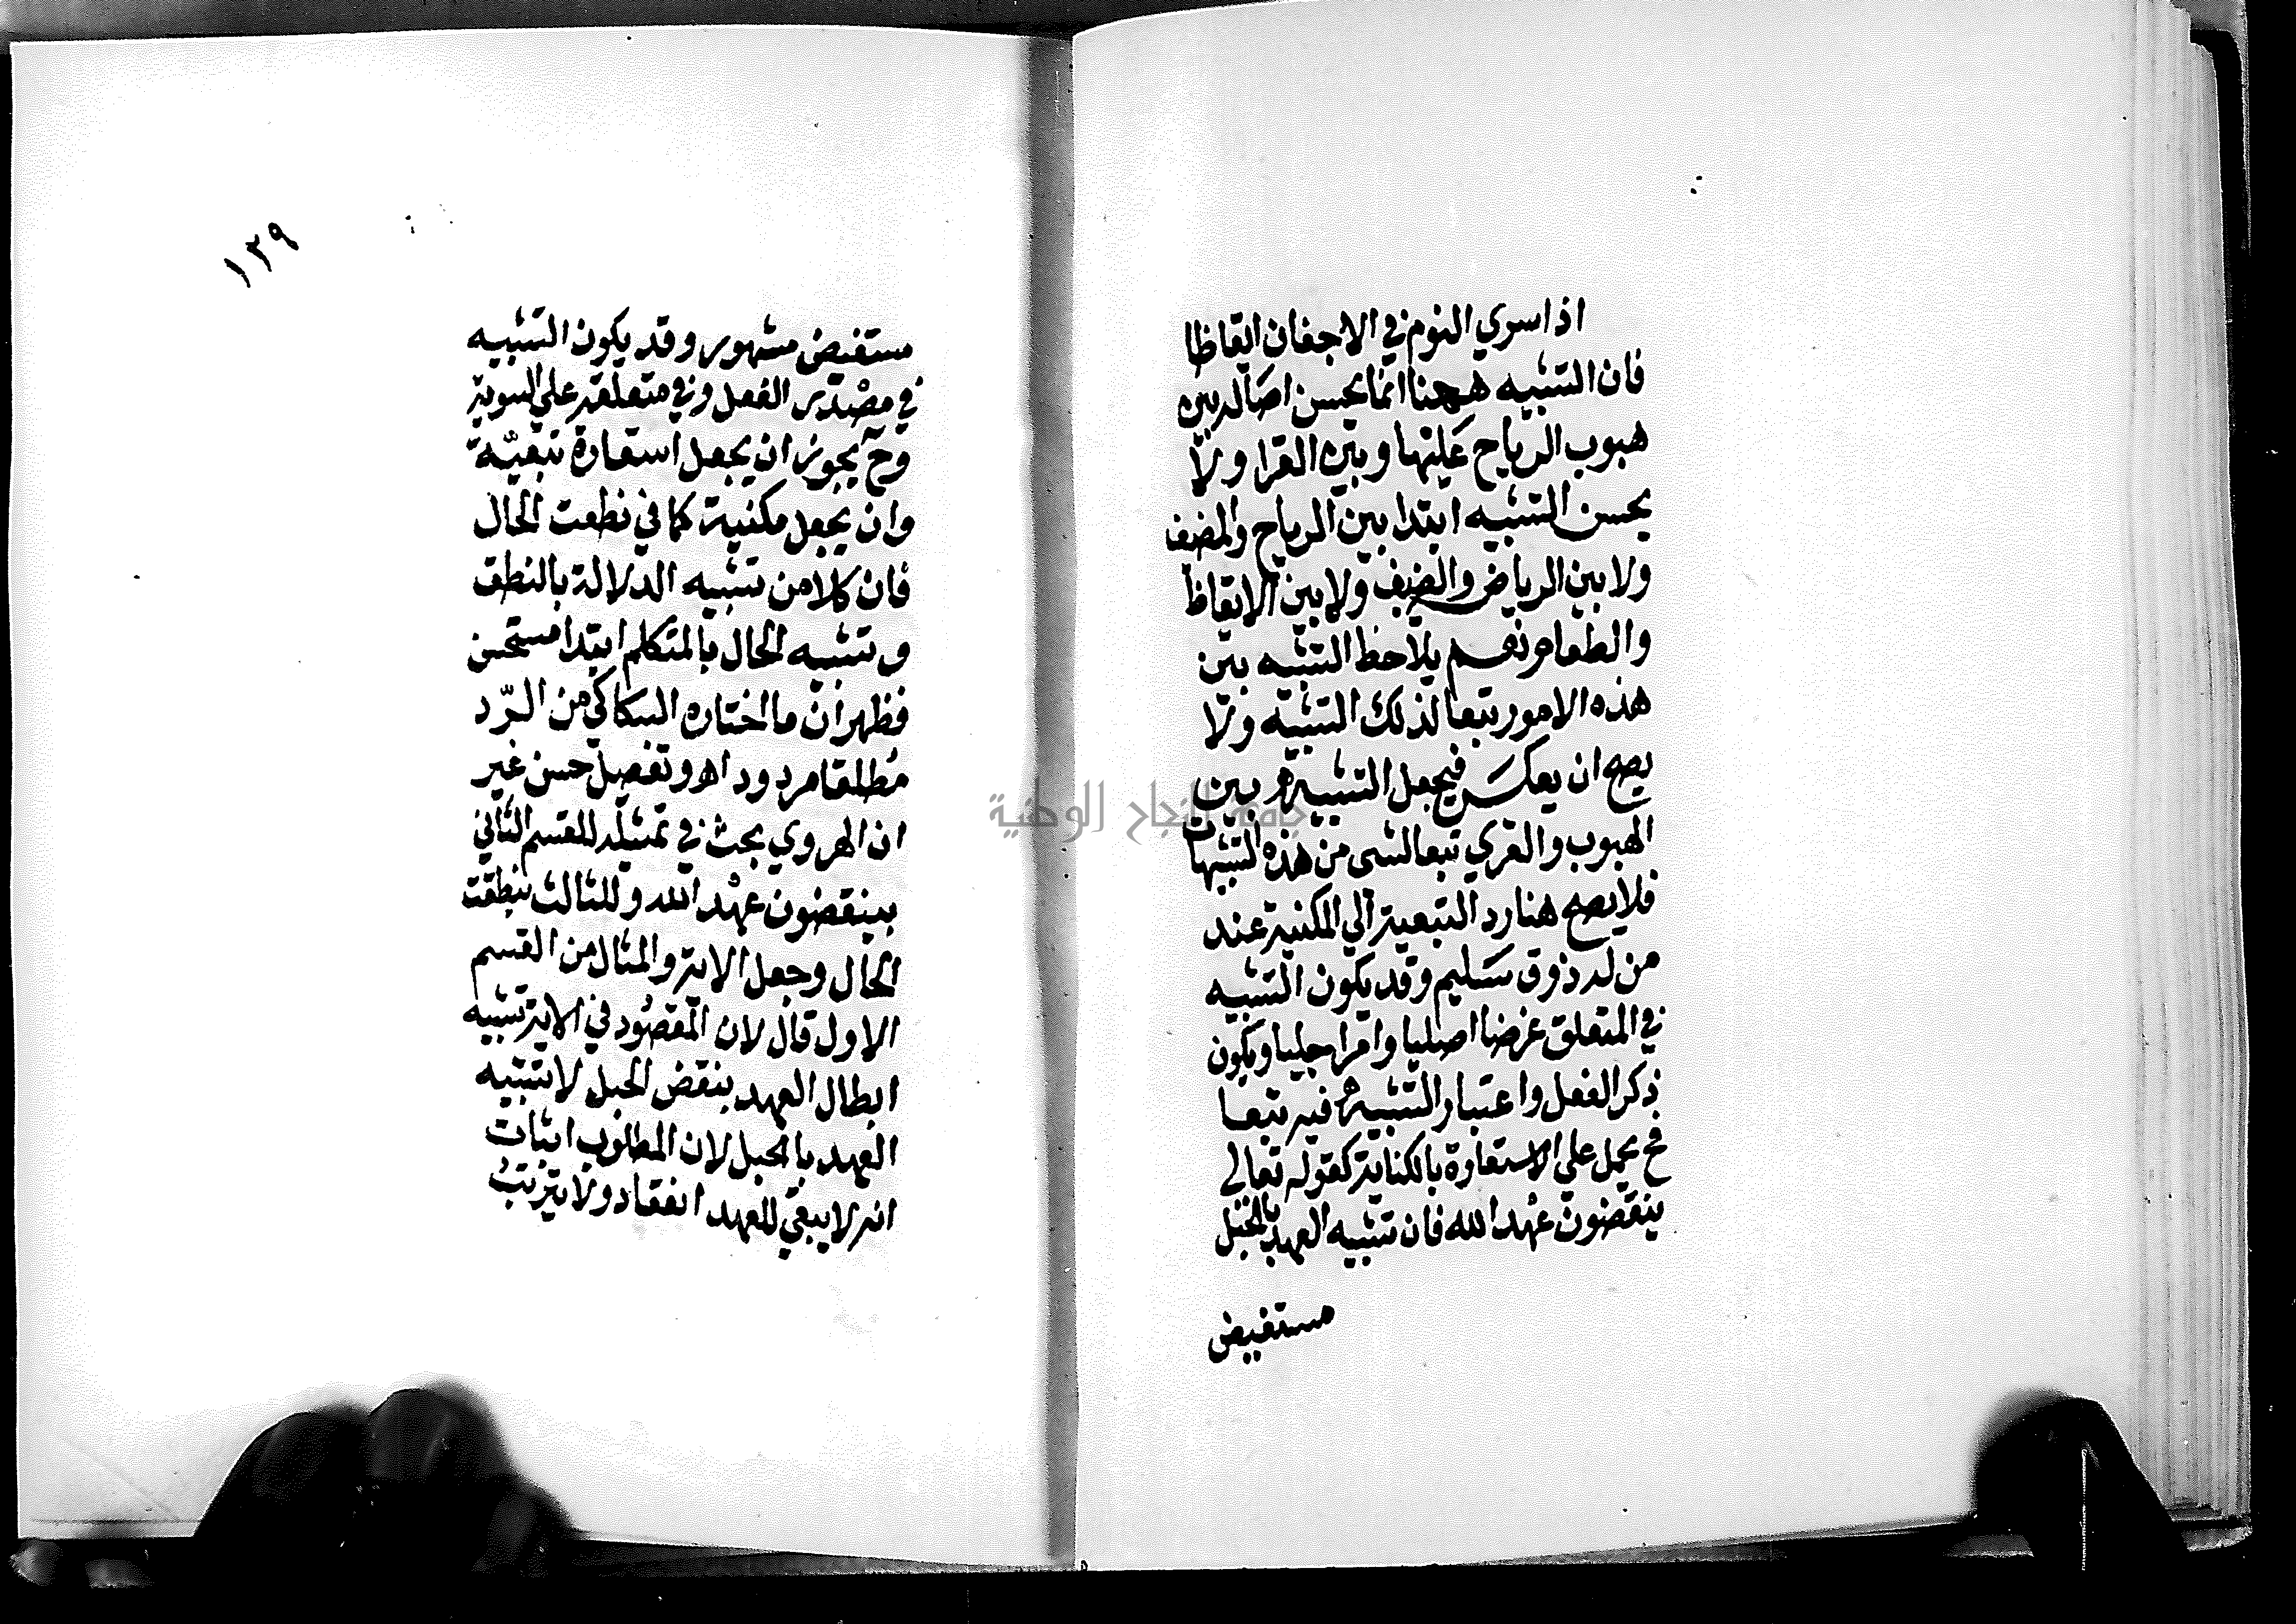 اذا سري النوم في الاجفان ايقاظا
فان التشبيه ههنا انما يحسن اصالة بين
هبوب الرياح عليها وبين القرا ولا
يحسن التشبيه ابتدا بين الرياح والمضيف
ولا بين الرياض والضيف ولا بين الايقاظ
والطعام نعم يلاحظ التشبيه بين
هذه الامور تبعا لذلك التشبيه ولا
يصح ان يعكس فيجعل التشبيه بين
الهبوب والقري تبعا لشي من هذه التشبيهات
فلا يصح هنا رد التبعية الي المكنية عند
من له ذوق سليم وقد يكون التشبيه
في المتعلق غرضا اصليا وامرا جليا ويكون
ذكر الفعل واعتبار التشبيه فيه تبعا
فح يحمل علي الاستعارة بالكناية كقوله تعالي
ينقضون عهد الله فان تشبيه العهد بالحبل
مستفيض
١٢٩
مستفيض مشهور وقد يكون التشبيه
في مصدر الفعل وفي متعلقه علي السوية
وح يجوز ان يجعل استعارة تبعية
وان يجعل مكنية كما في نطقت الحال
فان كلا من تشبيه الدلالة بالنطق
وتشبيه الحال بالمتكلم ابتدا مستحسن
فظهر ان ما اختاره السكاكي من الرد
مطلقا مردود اه وتفصيل حسن غير
ان الهروي بحث في تمثيله للقسم الثاني
بينقضون عهد الله وللثالث بنطقت
الحال وجعل الاية والمثال من القسم
الاول قال لان المقصود في الاية تشبيه
ابطال العهد بنقض الحبل لا تشبيه
العهد بالحبل لان المطلوب اثبات
انه لا يبقي للعهد انعقاد ولا يترتب
جامعة النجاح الوطنية